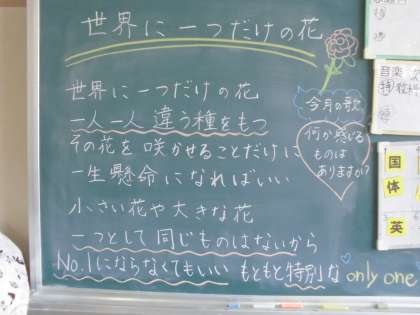 世界に一つだけの花
世界に一つだけの花
一人一人違う種をもつ
その花を咲かせることだけに
一生懸命になればいい
小さい花や大きな花
一つとして同じものはないから
No.1にならなくてもいい もともと特別な only one
今月の歌
何か感じる
ものは
ありますか?
音楽
国
体
英